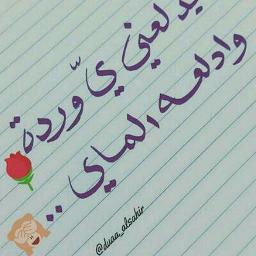 يدلعني يّ وردة
وادلعه الماي ..
@duaa_alsahir